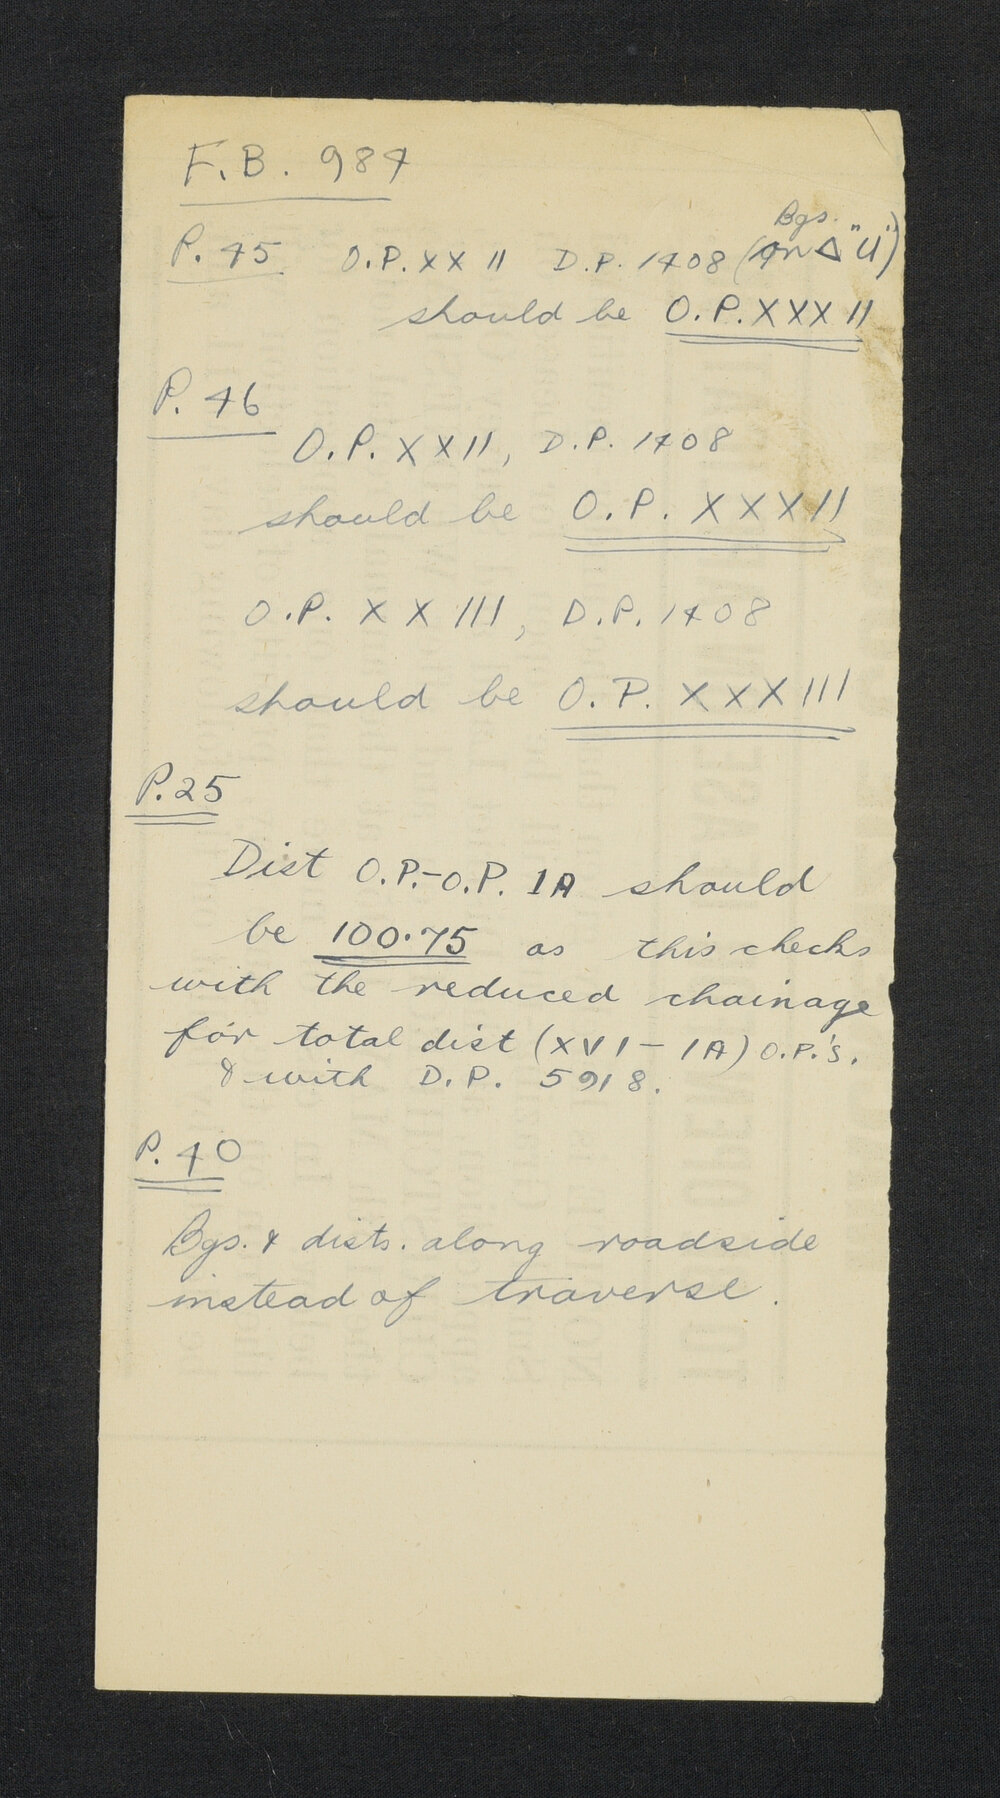 F.B. 984
Bgs.
P. 45 O.P. XXII D.P. 1408 (on Δ "U")
should be O.P. XXXII
P. 46
O.P. XXII, D.P. 1408
should be O.P. XXXII
O.P. XXIII, D.P. 1408
should be O.P. XXXIII
P.25
Dist O.P.-O.P. 1A should
be 100.75 as this checks
with the reduced chainage
for total dist (XVI - 1A) O.P.'s.
& with D.P. 5918.
P. 40
Bgs. & dists. along roadside
instead of traverse.